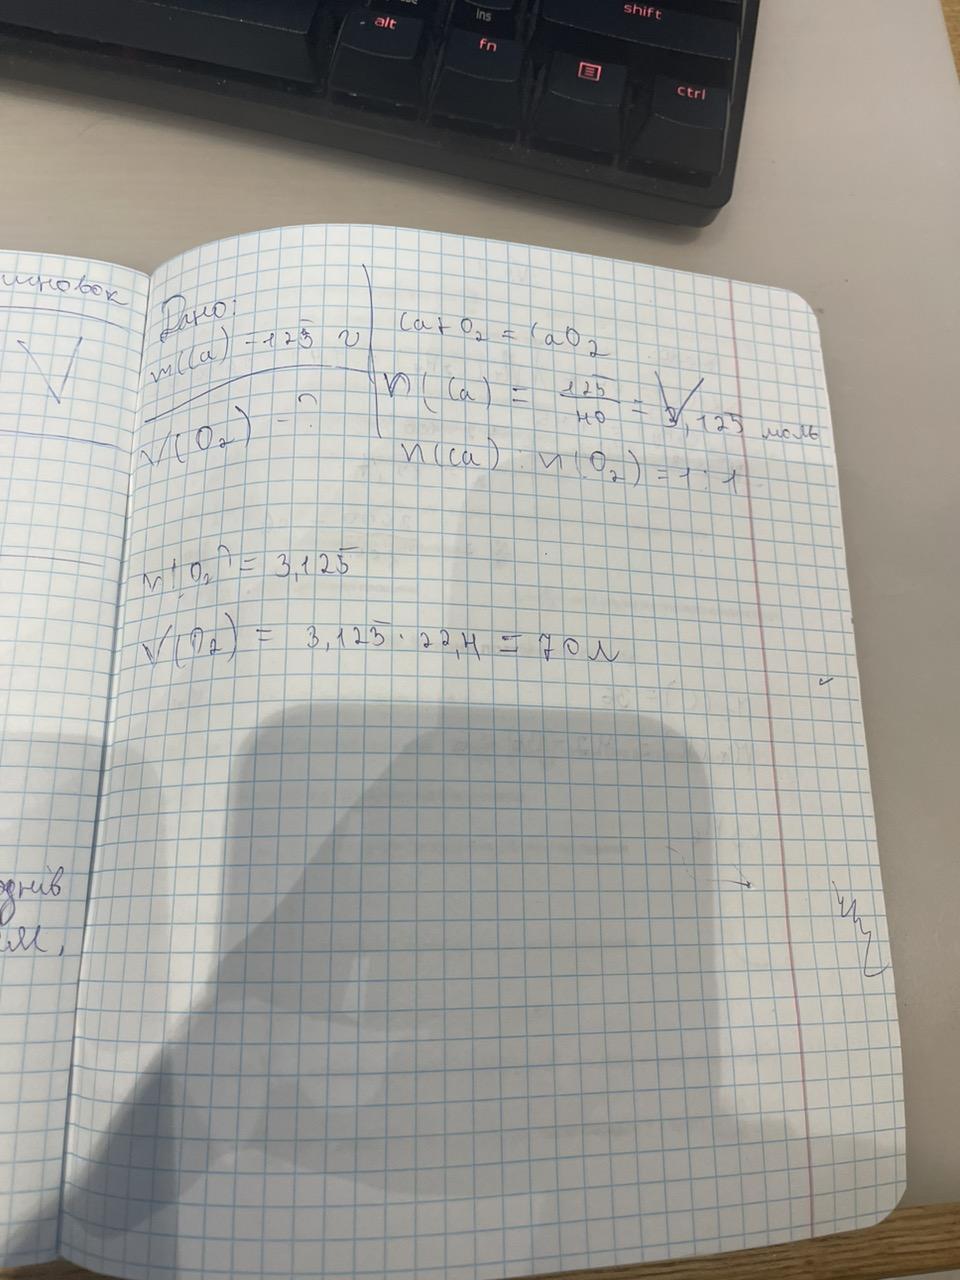 alt
ins
shift
fn
ctrl
Дано:
m(Ca) = 125 г
V(O₂) = ?
Ca + O₂ = CaO₂
n(Ca) = 125/40 = 3,125 моль
n(Ca) : n(O₂) = 1 : 1
n(O₂) = 3,125
V(O₂) = 3,125 · 22,4 = 70 л